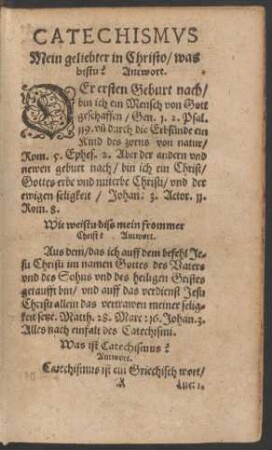 CATECHISMVS
Mein geliebter in Christo/ was
bistu? Antwort.
DEr ersten Geburt nach/
bin ich ein Mensch von Gott
geschaffen/ Gen. 1. 2. Psal.
119. vñ durch die Erbsünde ein
Kind des zorns von natur/
Rom. 5. Ephes. 2. Aber der andern vnd
newen geburt nach/ bin ich ein Christ/
Gottes erbe vnd miterbe Christi/ vnd der
ewigen seligkeit/ Johan: 3. Actor. 11.
Rom. 8.
Wie weistu diss mein frommer
Christ? Antwort.
Aus dem/ das ich auff dem befehl Je-
su Christi im namen Gottes des Vaters
vnd des Sohns vnd des heiligen Geistes
getaufft bin/ vnd auff das verdienst Jesu
Christi allein das vertrawen meiner selig-
keit setze. Matth. 28. Marc: 16. Johan. 3.
Alles nach einfalt des Catechismi.
Was ist Catechismus?
Antwort.
Catechismus ist ein Griechisch wort/
A Luc: 1.